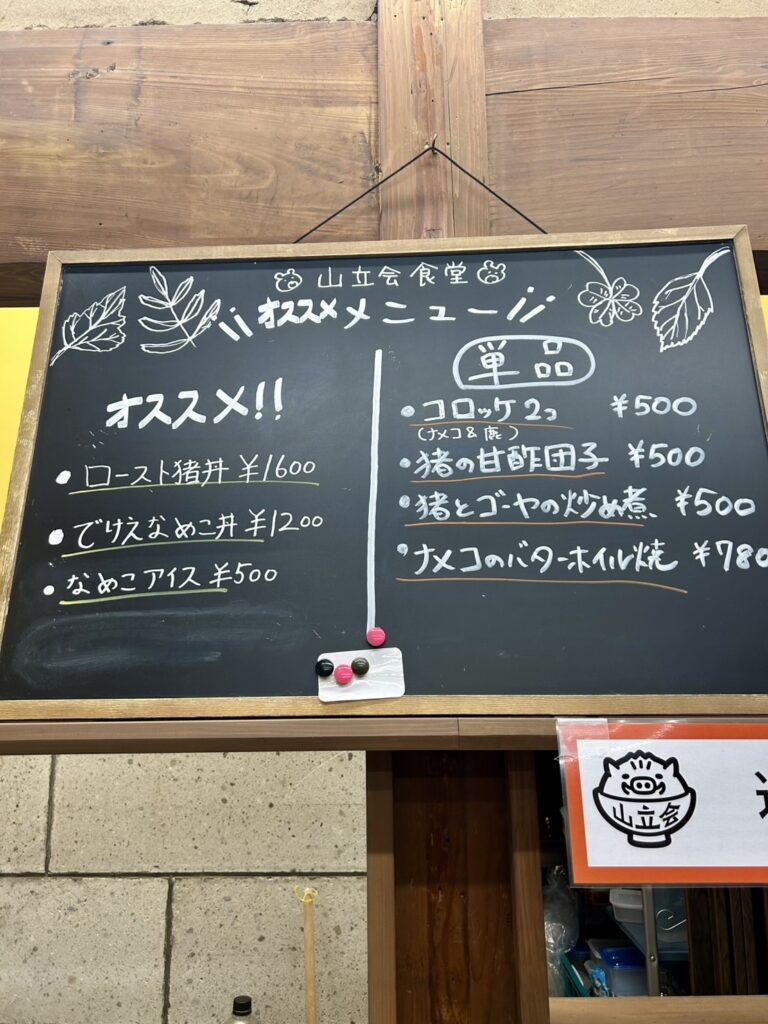 山立会食堂
オススメメニュー
オススメ!!
・ロースト猪丼 ¥1600
・でけえなめこ丼 ¥1200
・なめこアイス ¥500
単品
・コロッケ2コ ¥500
(ナメコ&鹿)
・猪の甘酢団子 ¥500
・猪とゴーヤの炒め煮 ¥500
・ナメコのバターホイル焼 ¥780
山立会